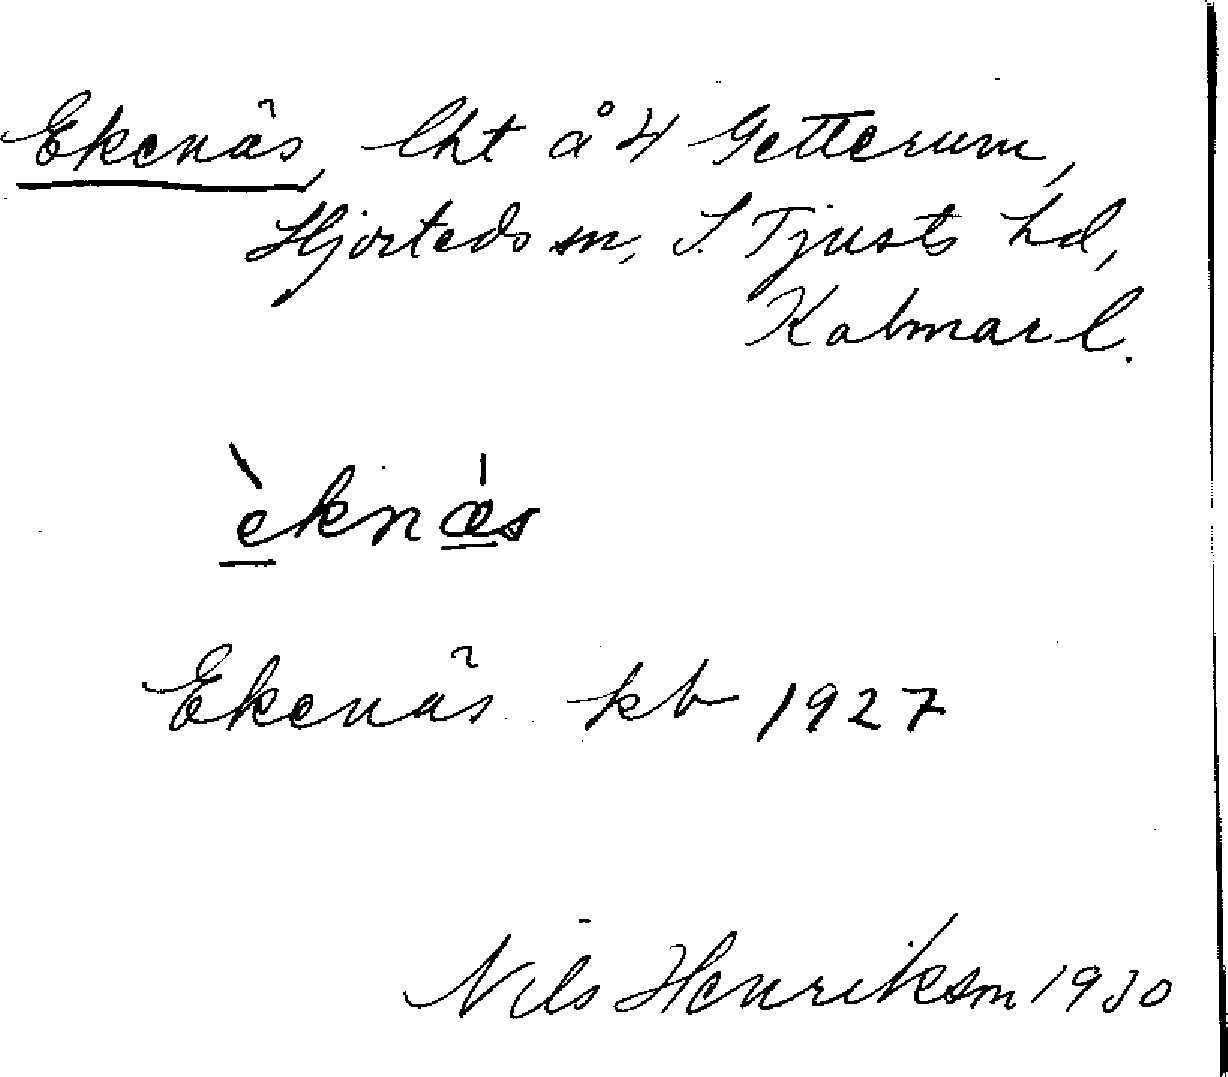 Ekenäs, lht å 4 Getterum,
Hjorteds sn, S. Tjusts hd,
Kalmar l.
èknǽs
Ekenäs kb 1927
Nils Henriksson 1930